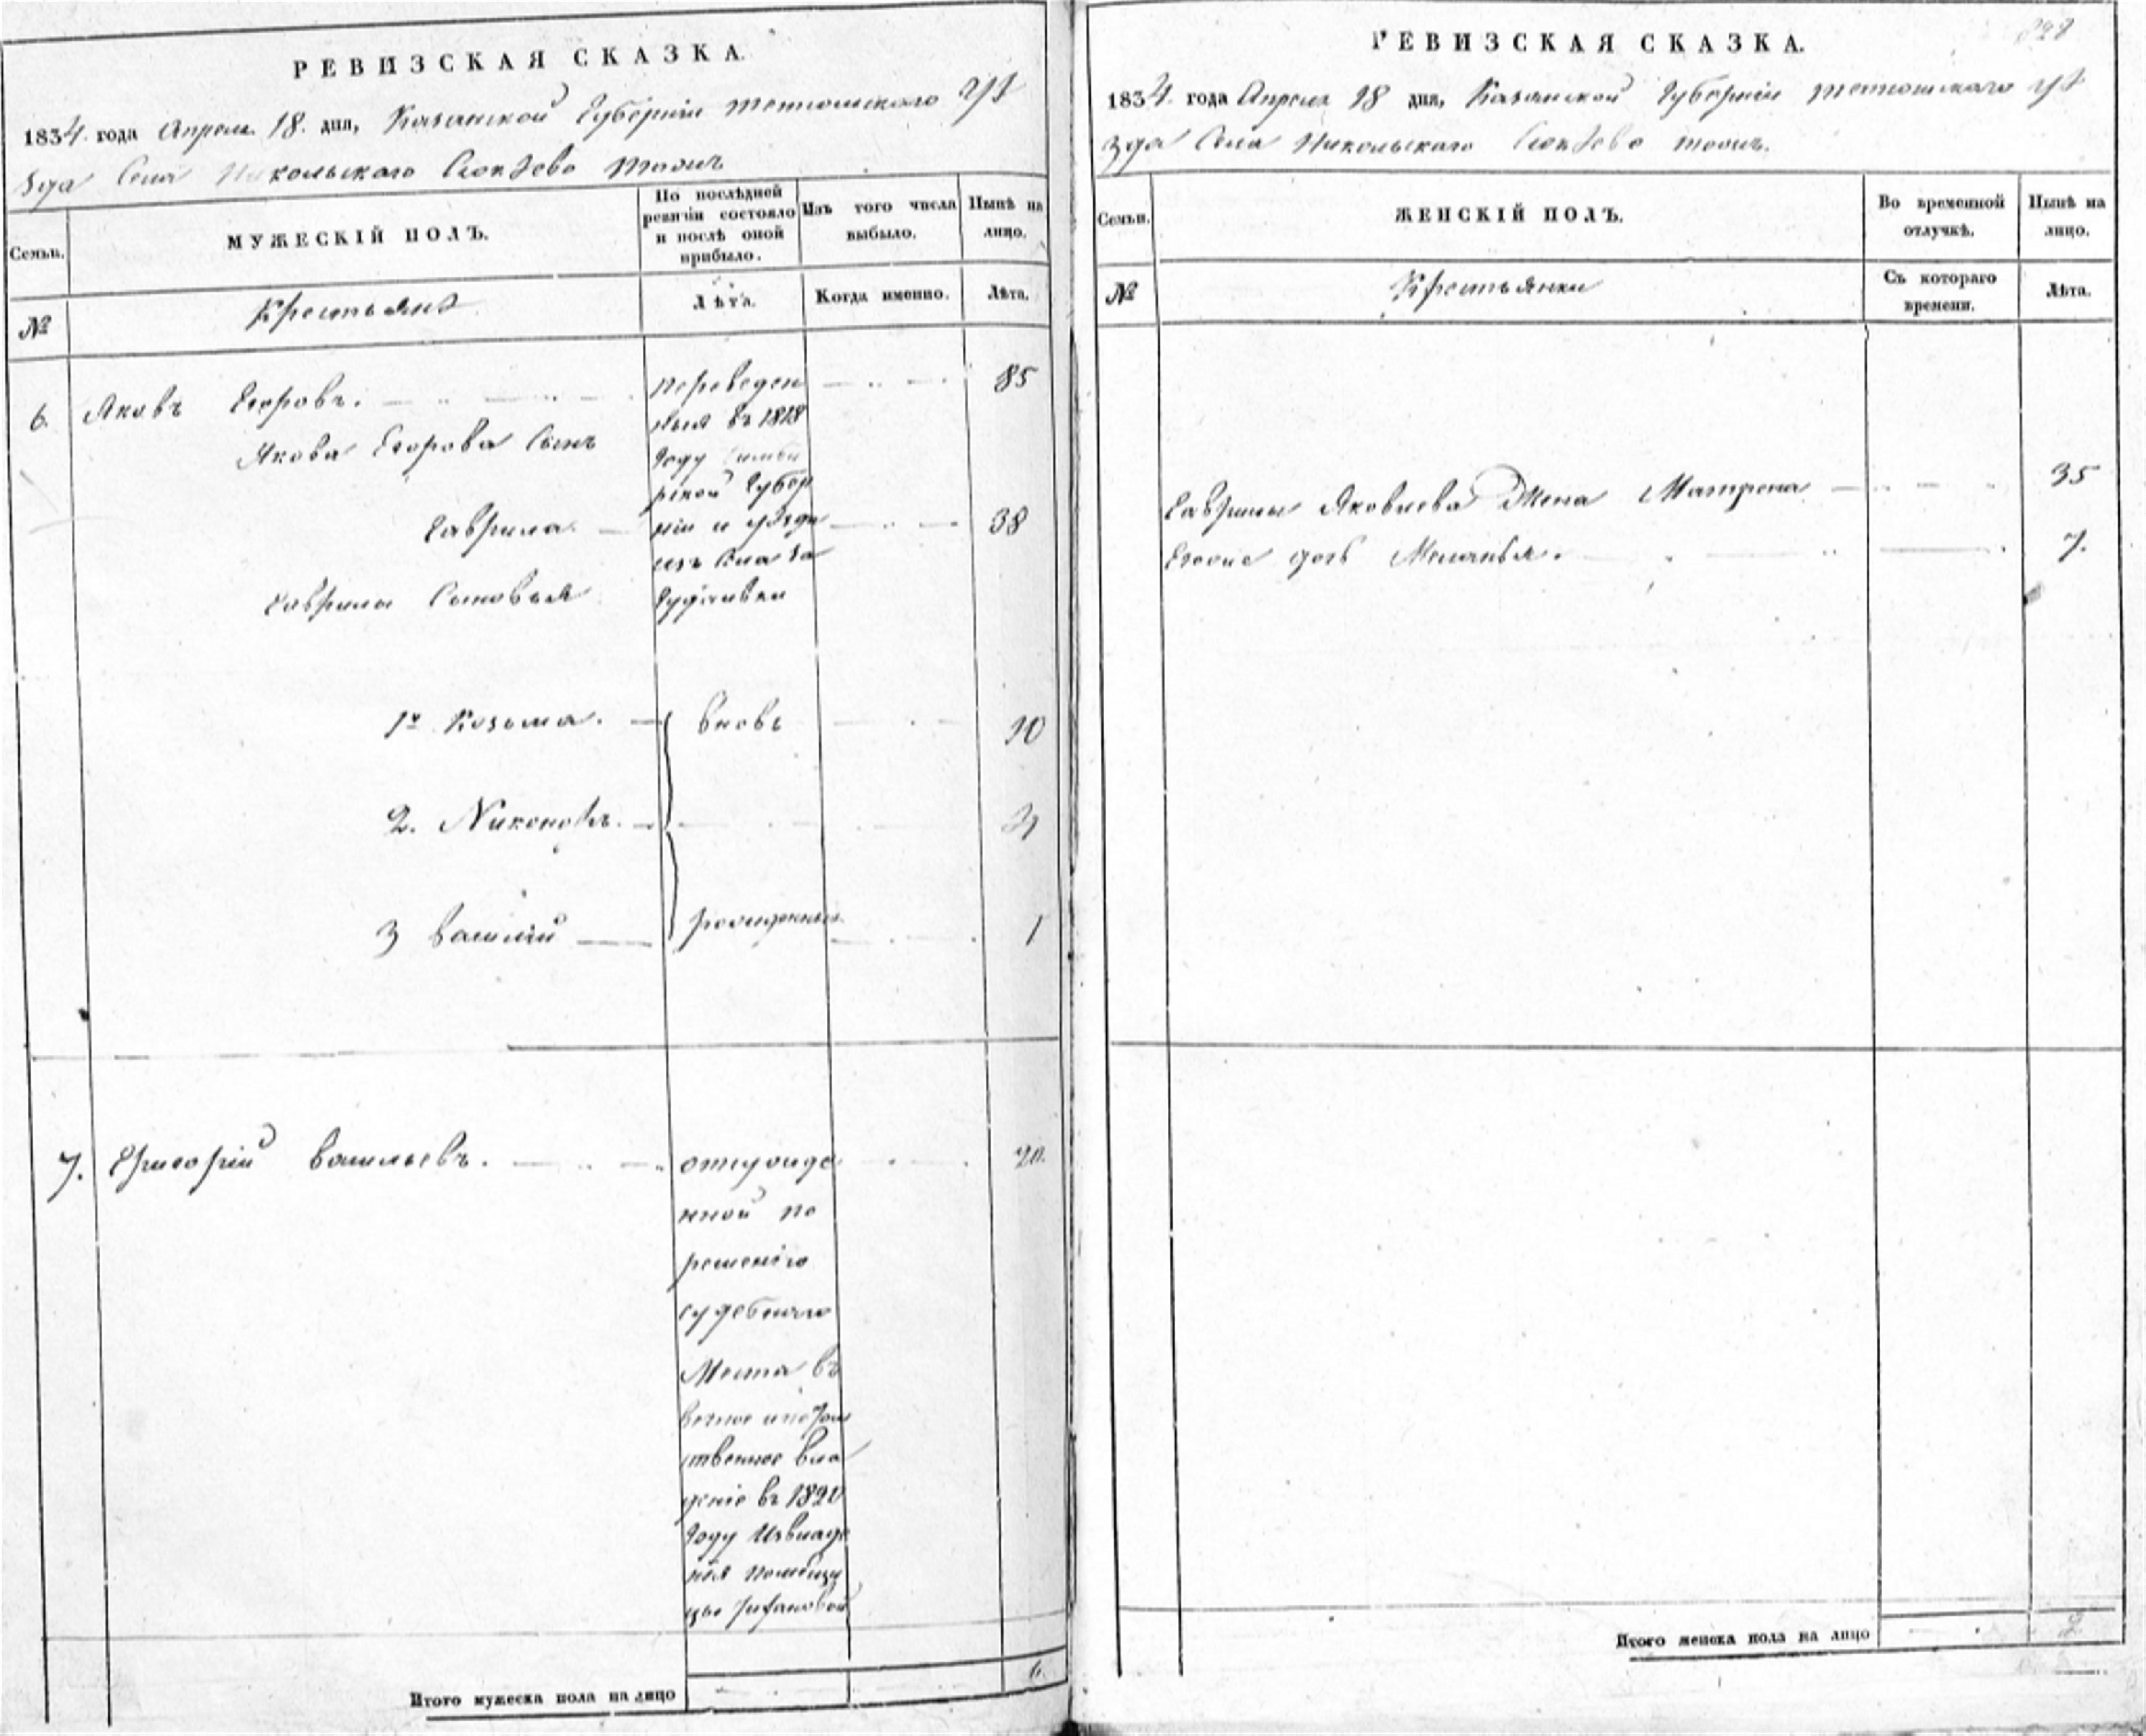 РЕВИЗСКАЯ СКАЗКА.
1834. года Апреля 18. дня, Казанской Губерніи тетюшскаго уѣ
зда Села Никольскаго тожъ
Семьи.
МУЖЕСКІЙ ПОЛЪ.
По послѣдней ревизіи состояло и послѣ оной прибыло.
Изъ того числа выбыло.
Нынѣ на лицо.
№
Крестьянѣ
Лѣта.
Когда именно.
Лѣта.
6. Яковъ Егоровъ.
переведен
ныя въ 1818
году симби
рской губер
ніи и уѣзда
изъ села
85
Якова Егорова сынъ
Гаврила. 38
Гаврилы Сыновья
1й Козьма. вновь 10
2. Никоноръ.
3 Василий рожденныя 1
7. Григорій Васильевъ.
отсужде
нной по
решенію
судебнаго
Места въ
вечное и потом
ственное вла
деніе въ 1820
году Изъ владе
нія помещи
цы
20.
Итого мужеска пола на лицо 6.
РЕВИЗСКАЯ СКАЗКА.
1834. года Апреля 18 дня, Казанской Губерніи тетюшскаго уѣ
зда Села Никольскаго тожъ.
Семьи.
ЖЕНСКІЙ ПОЛЪ.
Во временной отлучкѣ.
Нынѣ на лицо.
№
Крестьянки
Съ котораго времени.
Лѣта.
Гаврилы Яковлева Жена Матрена 35
Егоже дочь Меланья. 7.
Итого женска пола на лицо 2